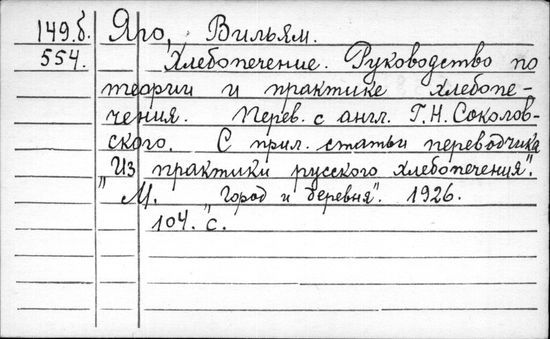 149.б. Яго, Вильям.
554. Хлебопечение. Руководство по
теории и практике хлебопе-
чения. Перев. с англ. Г. Н. Соколов-
ского. С прил. статьи переводчика
„Из практики русского хлебопечения".
М. „Город и деревня". 1926.
104. с.